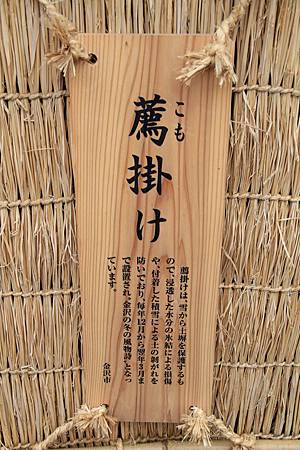 こも
薦掛け
薦掛けは、雪から土塀を保護するも
ので、浸透した水分の氷結による損傷
や、付着した積雪による土の剥がれを
防いでおり、毎年12月から翌年3月ま
で設置され、“金沢の冬の風物詩”となっ
ています。
金沢市